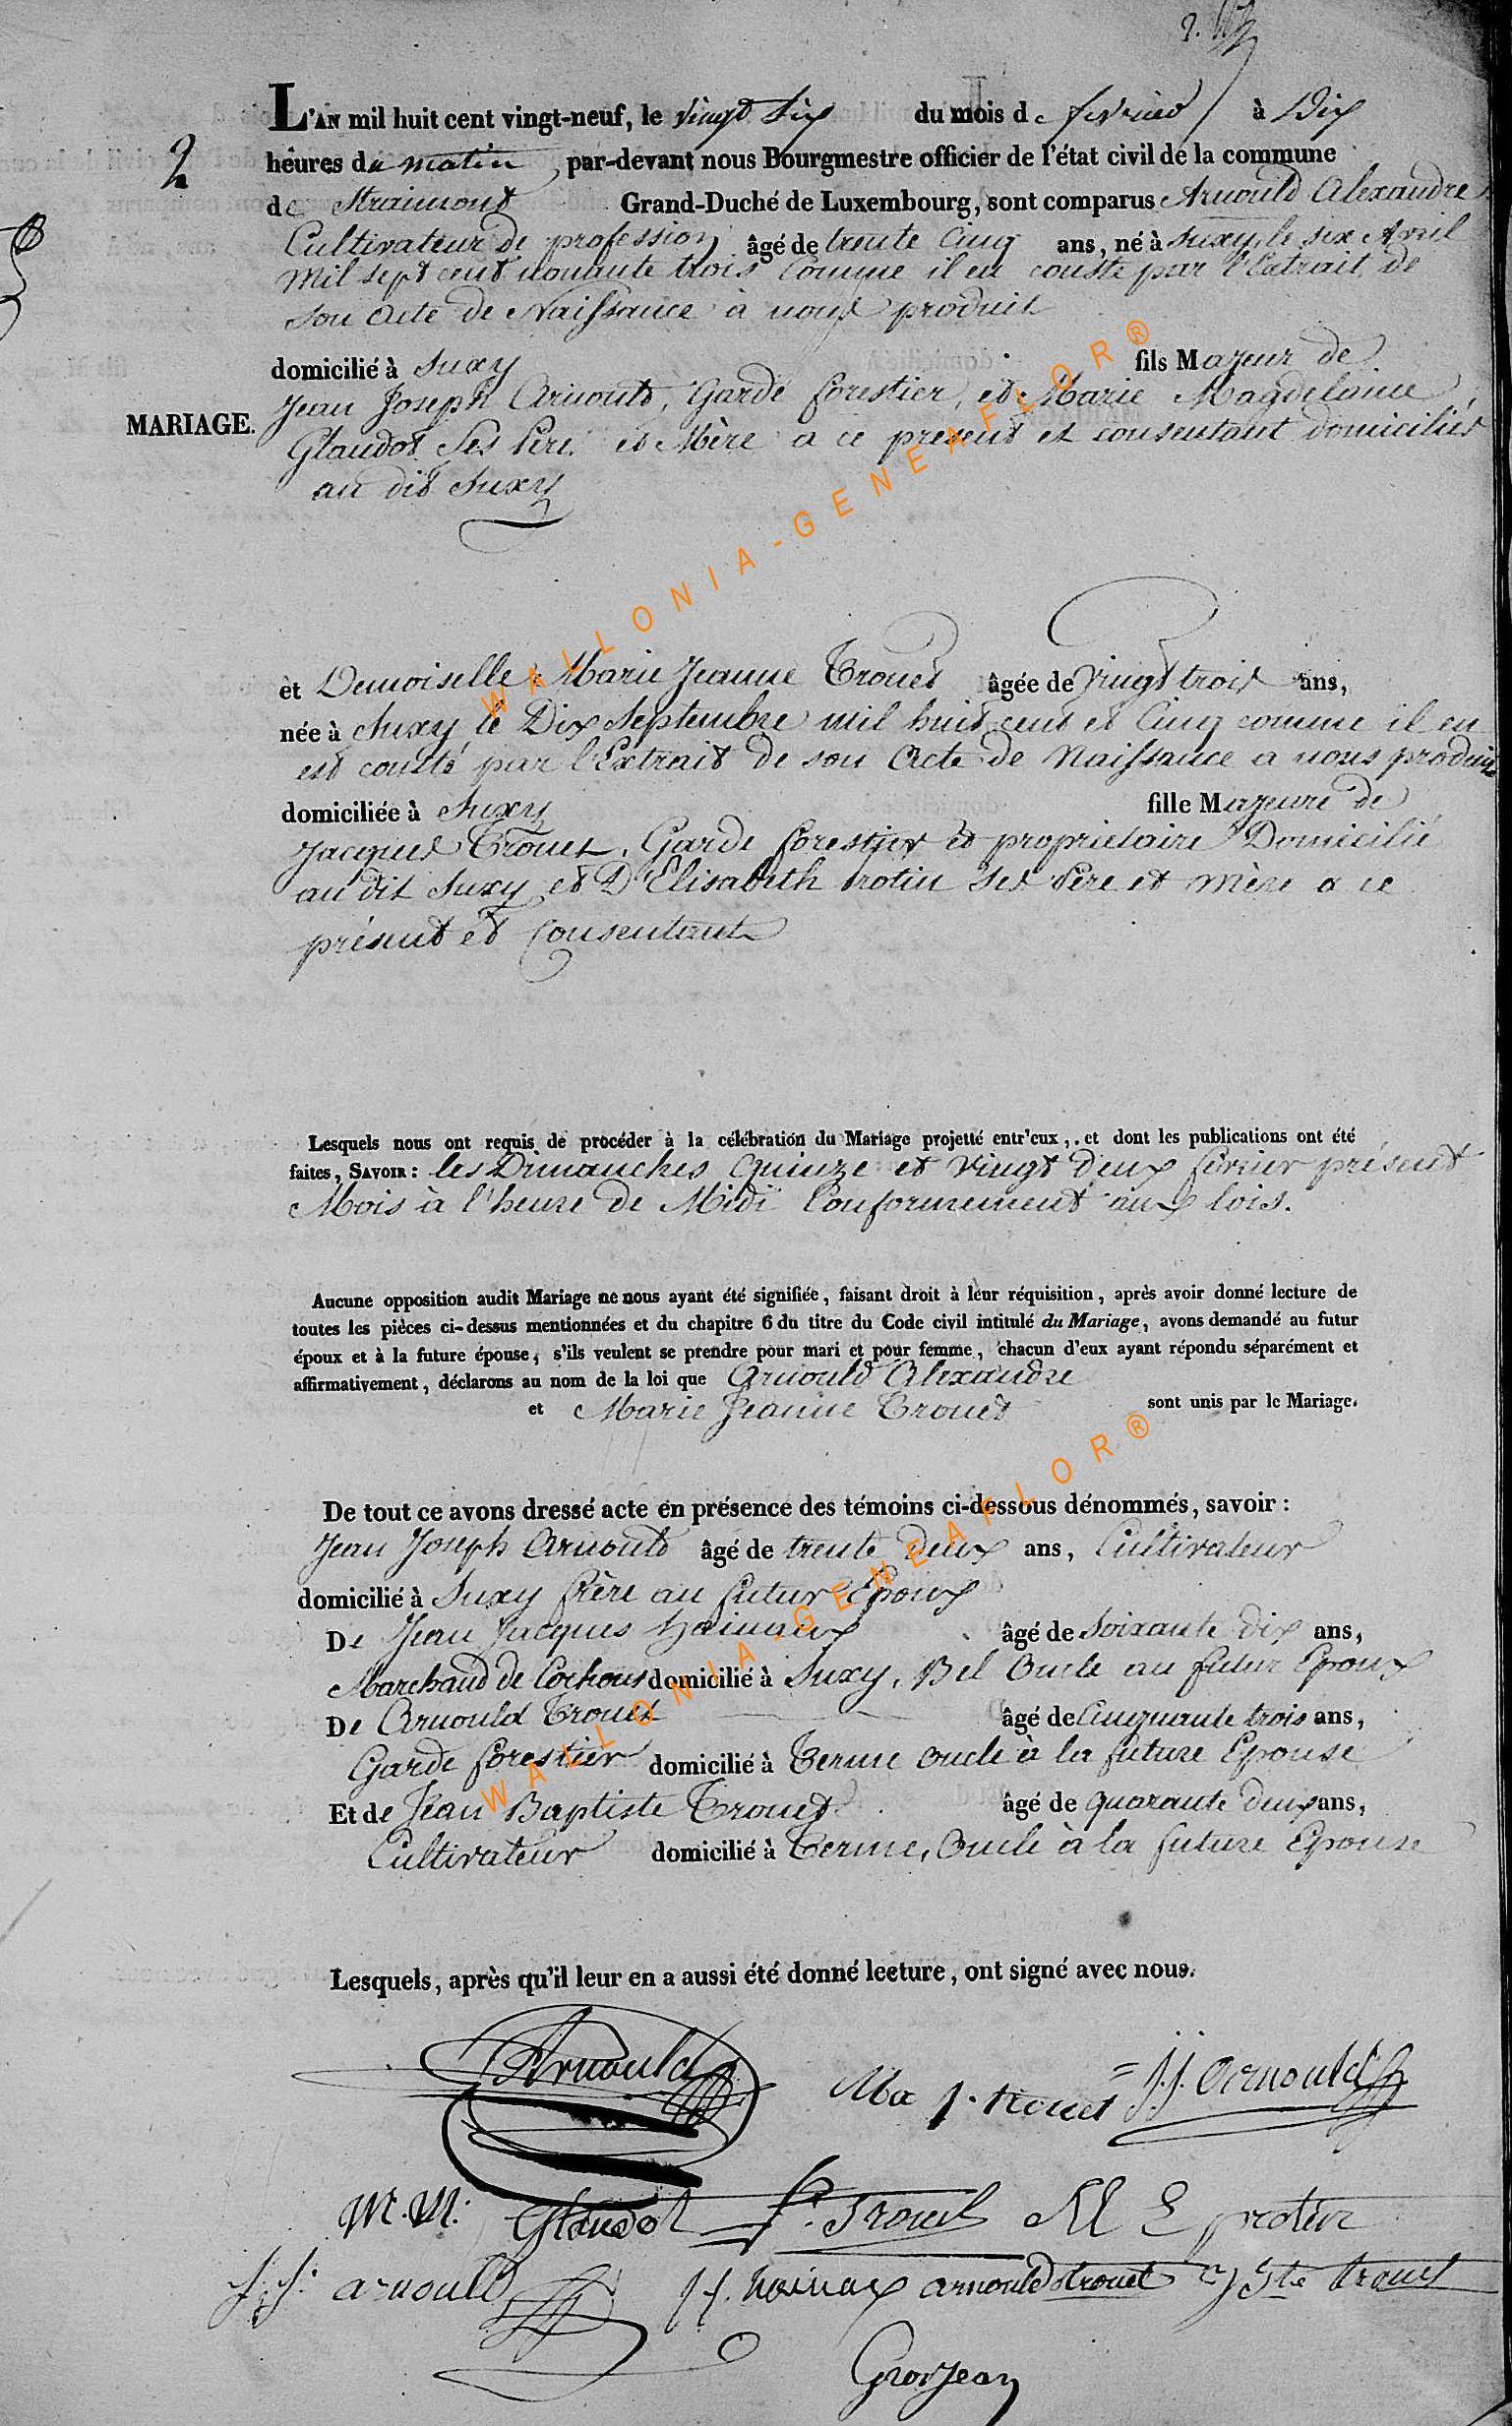 2
L'AN mil huit cent vingt-neuf, le vingt Six du mois de fevrier à Dix
heures du matin par-devant nous Bourgmestre officier de l'état civil de la commune
de Straimont Grand-Duché de Luxembourg, sont comparus Arnould Alexandre
Cultivateur de profession âgé de trente Cinq ans, né à Suxy, le six Avril
Mil sept cent nonante trois Comme il en conste par l'Extrait de
son Acte de Naissance à nous produit
domicilié à Suxy fils Majeur de
Jean Joseph Arnould, Garde forestier, et Marie Magdelaine
MARIAGE.
Glaudot Ses Père et Mère a ce présent et consentant domiciliés
au dit Suxy
et Demoiselle Marie Jeanne Trouet âgée de Vingt trois ans,
née à Suxy, le Dix Septembre mil huit cent et Cinq comme il en
est consté par l'Extrait de son Acte de Naissance a nous produit
domiciliée à Suxy fille Majeure de
Jacques Trouet, Garde forestier et proprietaire Domicilié
au dit Suxy et D Elisabeth Protin Ses Père et Mère a ce
présent et Consentant
Lesquels nous ont requis de procéder à la célébration du Mariage projetté entr'eux, et dont les publications ont été
faites, SAVOIR : les Dimanches Quinze et Vingt deux fevrier présent
Mois à l'heure de Midi Conformement aux lois.
Aucune opposition audit Mariage ne nous ayant été signifiée, faisant droit à leur réquisition, après avoir donné lecture de
toutes les pièces ci-dessus mentionnées et du chapitre 6 du titre du Code civil intitulé du Mariage, avons demandé au futur
époux et à la future épouse, s'ils veulent se prendre pour mari et pour femme, chacun d'eux ayant répondu séparément et
affirmativement, déclarons au nom de la loi que Arnould Alexandre
et Marie Jeanne Trouet sont unis par le Mariage.
De tout ce avons dressé acte en présence des témoins ci-dessous dénommés, savoir :
Jean Joseph Arnould âgé de trente Deux ans, Cultivateur
domicilié à Suxy frère au futur Epoux
De Jean Jacques Hainaux âgé de Soixante dix ans,
Marchand de Cochons domicilié à Suxy, Bel Oncle au futur Epoux
De Arnould Trouet âgé de Cinquante trois ans,
Garde forestier domicilié à Terme oncle à la future Epouse
Et de Jean Baptiste Trouet âgé de quarante deux ans,
Cultivateur domicilié à Terme, Oncle à la future Epouse
Lesquels, après qu'il leur en a aussi été donné lecture, ont signé avec nous.
Arnould Ma j. trouet J.J. Arnould
M. M. Glaudot J. Trouet M E protin
J. J. arnould J J. hainaux arnould trouet J Bte trouet
GrosJean
WALLONIA-GENEAFLOR®
WALLONIA-GENEAFLOR®